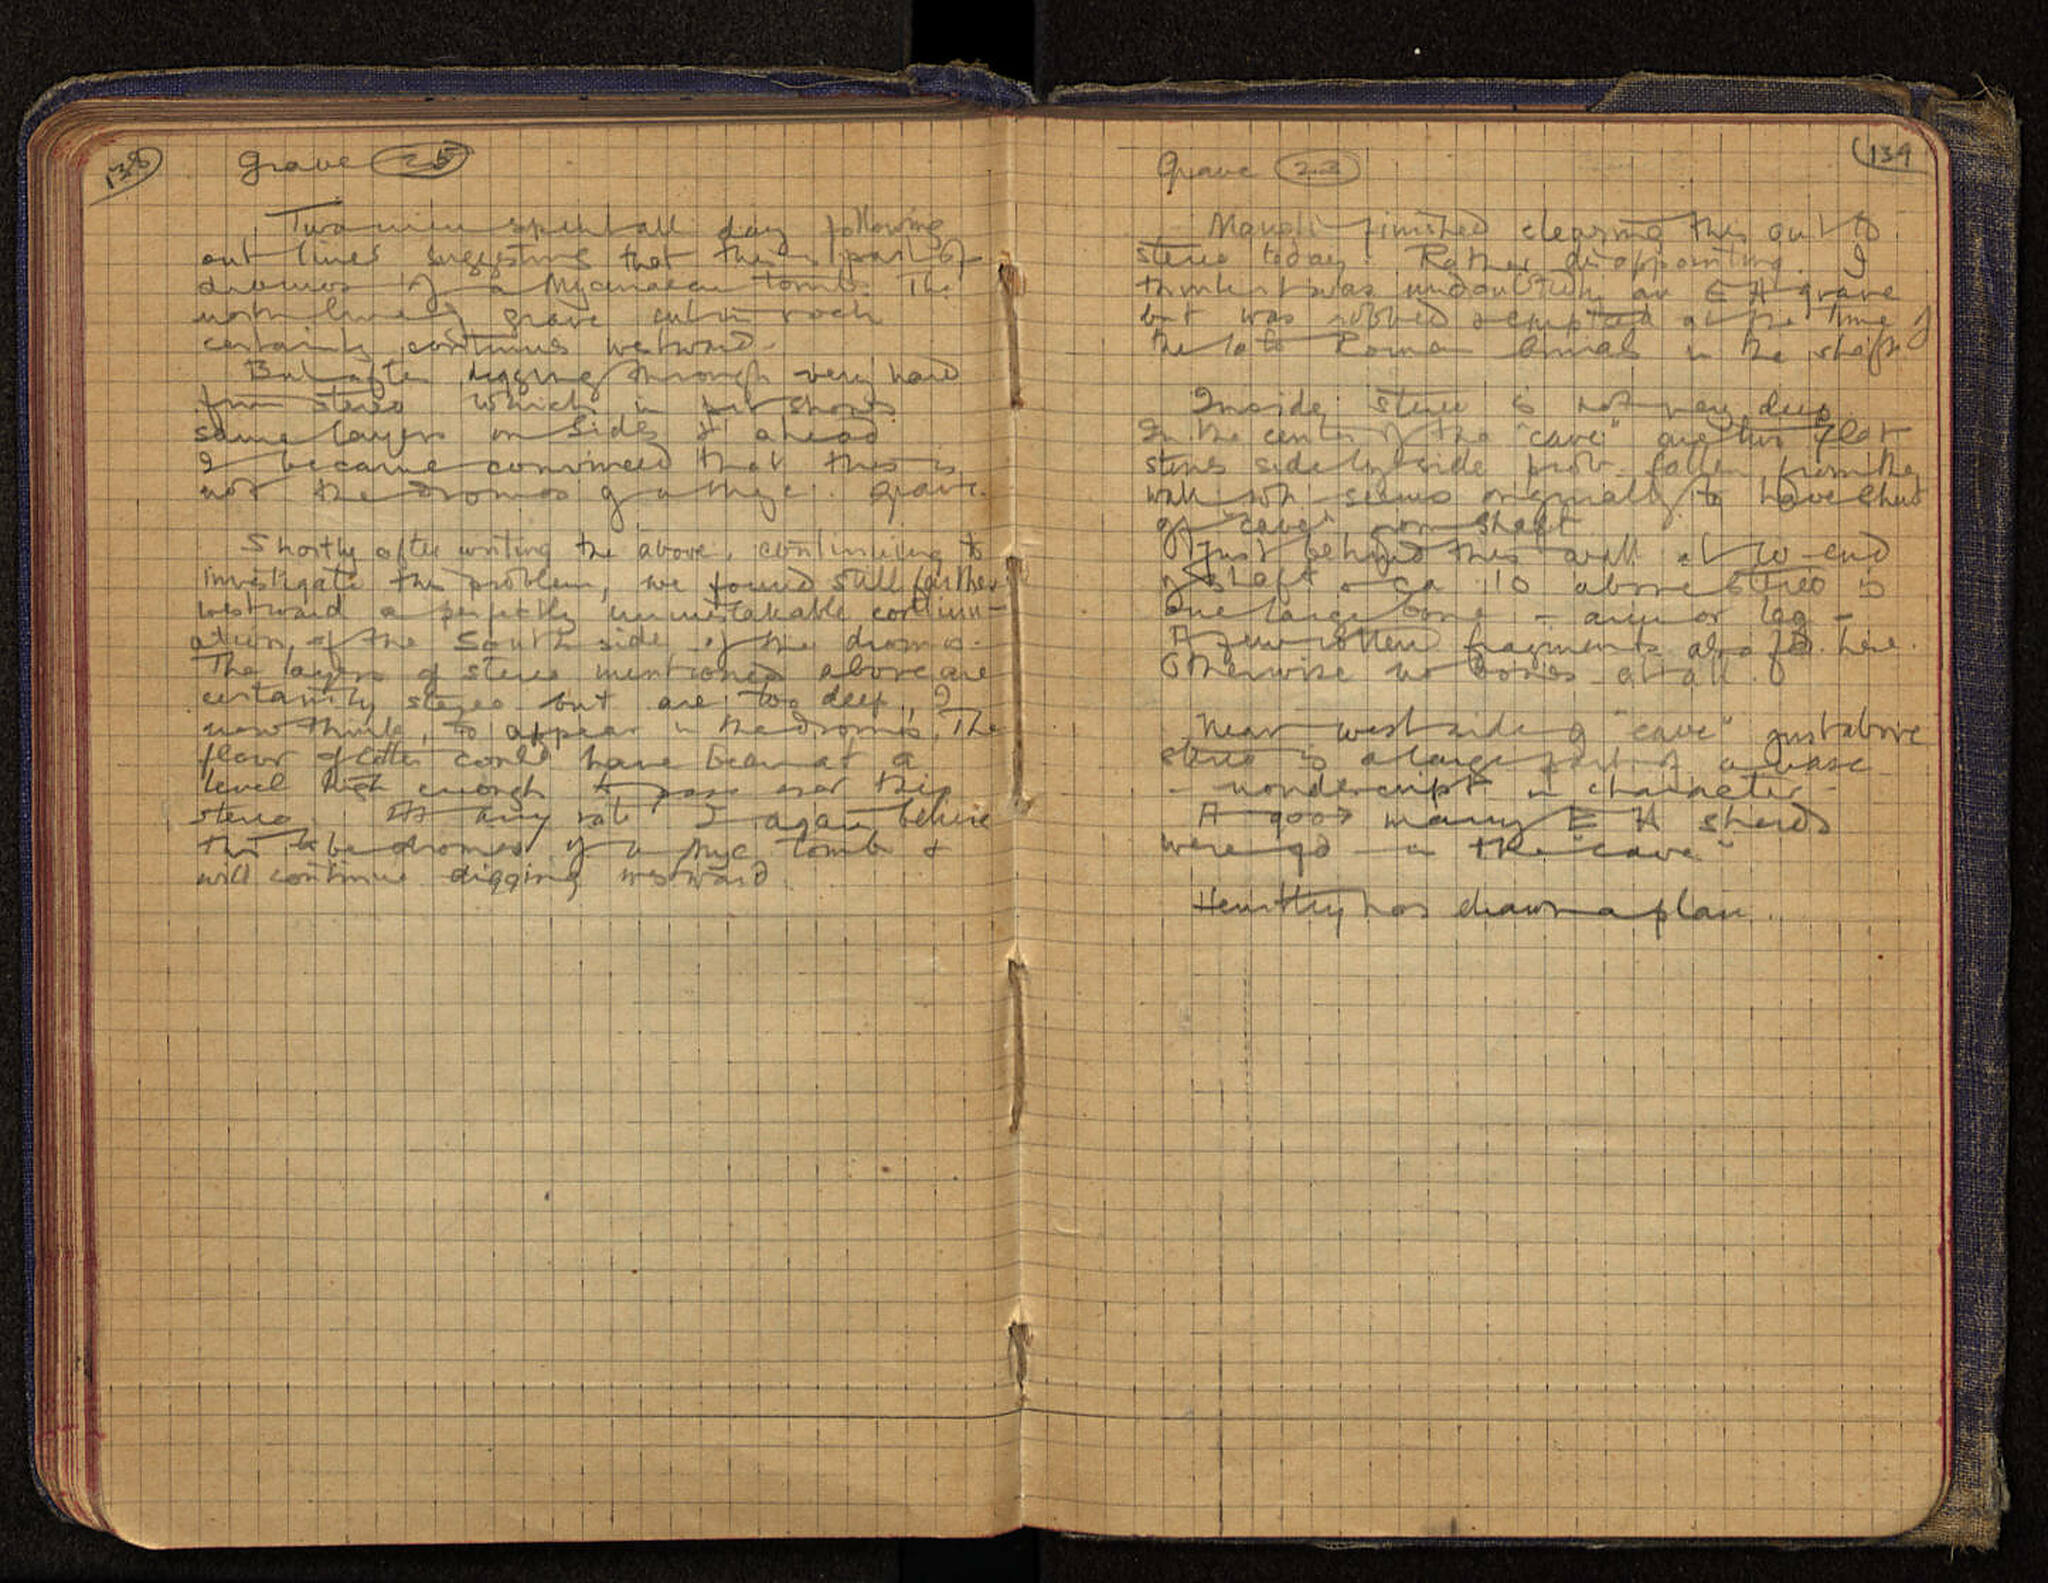 138
Grave 25
Two men spent all day following
out lines suggesting that this is part of
dromos of a Mycenaean tomb. The
north line of grave cut in rock
certainly continues westward.
But after digging through very hard
firm stereo which in fact shows
same layers on sides & ahead
I became convinced that this is
not the dromos of a Myc. grave.
Shortly after writing the above, continuing to
investigate the problem, we found still farther
westward a perfectly unmistakable continu-
ation of the South side of the dromos.
The layers of stereo mentioned above are
certainly stereo but are too deep, I
now think, to appear in the dromos. The
floor of latter could have been at a
level high enough to pass over this
stereo. At any rate I again believe
this to be dromos of a Myc tomb &
will continue digging westward.
139
Grave 23
finished clearing this out to
stereo today. Rather disappointing. I
think it was undoubtedly an E H grave
but was robbed & emptied at the time of
the late Roman burials in the shaft.
Inside stereo is not very deep.
In the center of the "cave" are two flat
stones side by side prob. fallen from the
wall wh. seems originally to have shut
off "cave" from shaft.
Just behind this wall at W end
of shaft & ca .10 above stereo is
one large bone - arm or leg -
A few rotten fragments also fd. here.
Otherwise no bones at all.
Near west side of "cave" just above
stereo is a large part of a vase
- nondescript in character -
A good many E H sherds
were fd in the "cave"
Heurtley has drawn a plan.